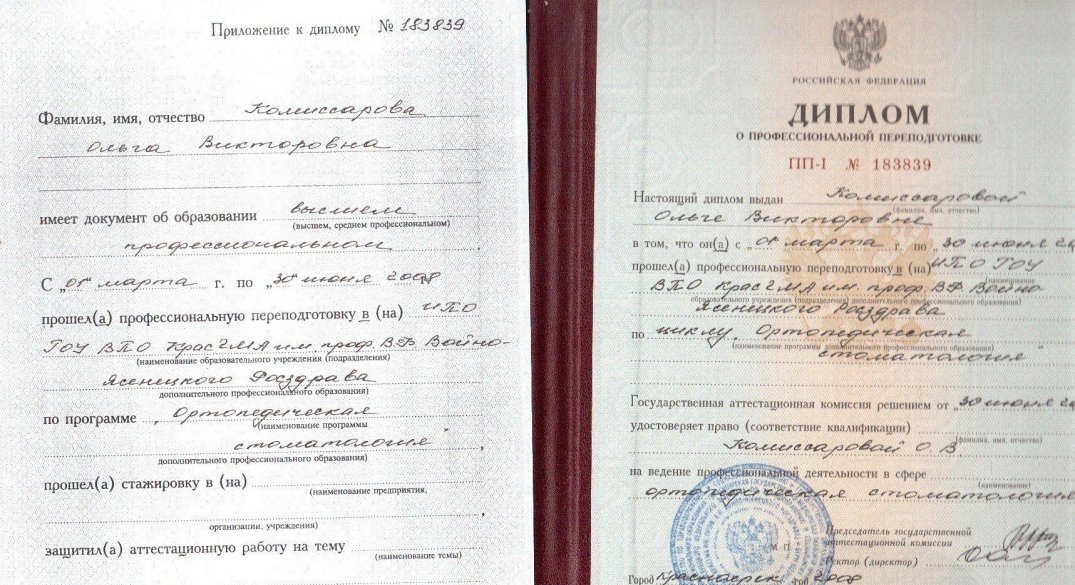 Приложение к диплому № 183839
Фамилия, имя, отчество Комиссарова
Ольга Викторовна
имеет документ об образовании высшем
(высшем, среднем профессиональном)
профессиональном
С „01" марта г. по „30" июня 2008
прошел(а) профессиональную переподготовку в (на) ИПО
ГОУ ВПО КрасГМА им. проф. В.Ф. Войно-
(наименование образовательного учреждения (подразделения)
Ясенецкого Росздрава
дополнительного профессионального образования)
по программе „Ортопедическая
(наименование программы
стоматология",
дополнительного профессионального образования)
прошел(а) стажировку в (на)
(наименование предприятия,
организации, учреждения)
защитил(а) аттестационную работу на тему
(наименование темы)
РОССИЙСКАЯ ФЕДЕРАЦИЯ
ДИПЛОМ
О ПРОФЕССИОНАЛЬНОЙ ПЕРЕПОДГОТОВКЕ
ПП-I № 183839
Настоящий диплом выдан Комиссаровой
(фамилия, имя, отчество)
Ольге Викторовне
в том, что он(а) с „01" марта г. по „30" июня 20
прошел(а) профессиональную переподготовку в (на) ИПО ГОУ
ВПО КрасГМА им. проф. В.Ф. Войно
образовательного учреждения (подразделения) дополнительного профессионального образования)
Ясенецкого Росздрава
по циклу „Ортопедическая
(наименование программы дополнительного профессионального образования)
стоматология"
Государственная аттестационная комиссия решением от „30" июня 20
удостоверяет право (соответствие квалификации)
(фамилия, имя, отчество)
Комиссаровой О. В
на ведение профессиональной деятельности в сфере
(наименование)
ортопедическая стоматология
Председатель государственной
аттестационной комиссии
М П
Ректор (директор)
Город Красноярск год 2008